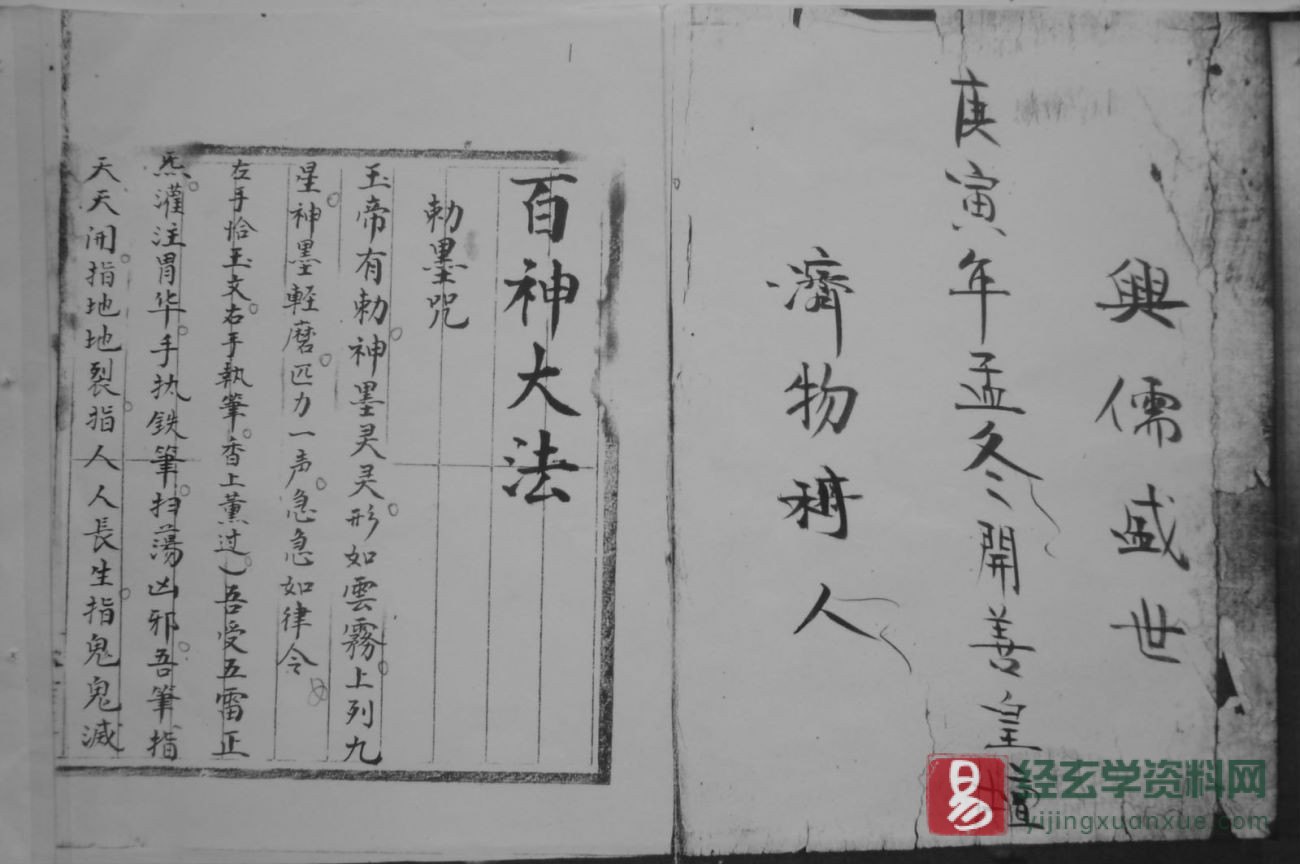 興儒盛世
庚寅年孟冬開善皇壇
濟物利人
百神大法
勅墨咒
玉帝有勅神墨灵灵形如雲霧上列九
星神墨輕磨匹力一声急急如律令
左手恰玉文右手執筆香上薰过吾受五雷正
炁灌注胃华手执鉄筆扫蕩凶邪吾筆指
天天開指地地裂指人人長生指鬼鬼滅
易
经玄学资料网
yijingxuanxue.com